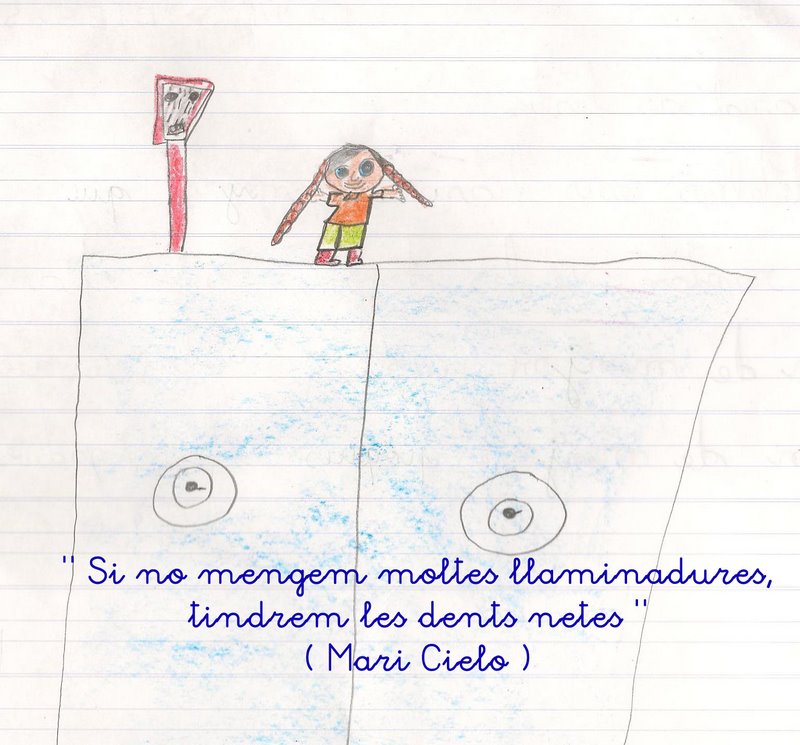 " Si no mengem moltes llaminadures,
tindrem les dents netes "
( Mari Cielo )